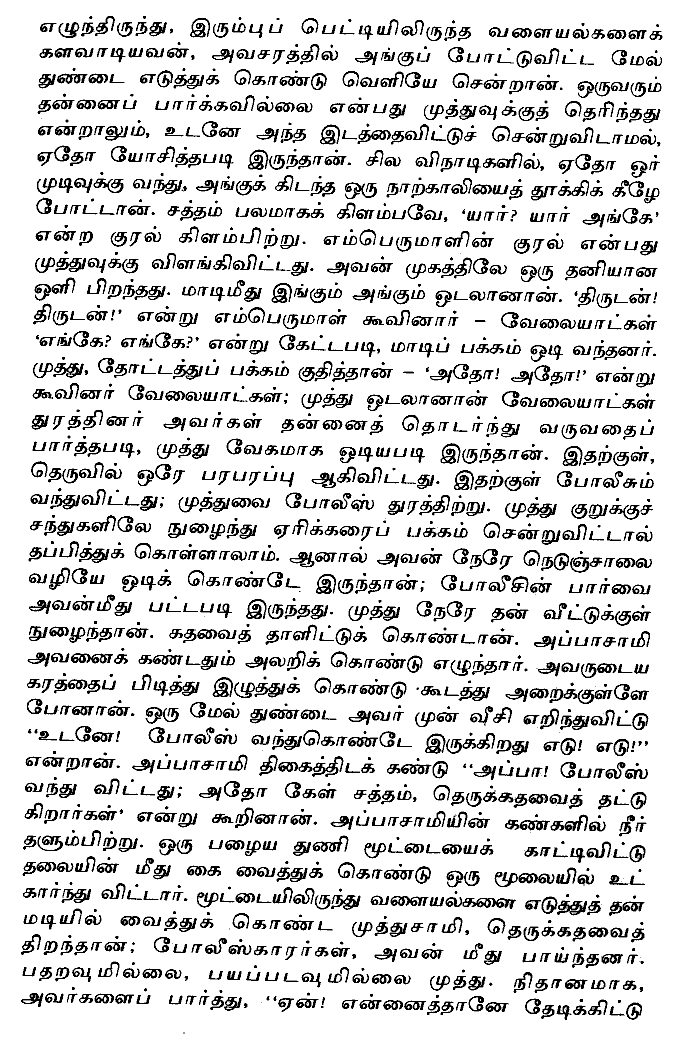 எழுந்திருந்து, இரும்புப் பெட்டியிலிருந்த வளையல்களைக்
களவாடியவன், அவசரத்தில் அங்குப் போட்டுவிட்ட மேல்
துண்டை எடுத்துக் கொண்டு வெளியே சென்றான். ஒருவரும்
தன்னைப் பார்க்கவில்லை என்பது முத்துவுக்குத் தெரிந்தது
என்றாலும், உடனே அந்த இடத்தைவிட்டுச் சென்றுவிடாமல்,
ஏதோ யோசித்தபடி இருந்தான். சில விநாடிகளில், ஏதோ ஒர்
முடிவுக்கு வந்து, அங்குக் கிடந்த ஒரு நாற்காலியைத் தூக்கிக் கீழே
போட்டான். சத்தம் பலமாகக் கிளம்பவே, ‘யார்? யார் அங்கே’
என்ற குரல் கிளம்பிற்று. எம்பெருமாளின் குரல் என்பது
முத்துவுக்கு விளங்கிவிட்டது. அவன் முகத்திலே ஒரு தனியான
ஒளி பிறந்தது. மாடிமீது இங்கும் அங்கும் ஓடலானான். ‘திருடன்!
திருடன்!’ என்று எம்பெருமாள் கூவினார் – வேலையாட்கள்
‘எங்கே? எங்கே?’ என்று கேட்டபடி, மாடிப் பக்கம் ஓடி வந்தனர்.
முத்து, தோட்டத்துப் பக்கம் குதித்தான் – ‘அதோ! அதோ!’ என்று
கூவினர் வேலையாட்கள்; முத்து ஓடலானான் வேலையாட்கள்
துரத்தினர் அவர்கள் தன்னைத் தொடர்ந்து வருவதைப்
பார்த்தபடி, முத்து வேகமாக ஓடியபடி இருந்தான். இதற்குள்,
தெருவில் ஒரே பரபரப்பு ஆகிவிட்டது. இதற்குள் போலீசும்
வந்துவிட்டது; முத்துவை போலீஸ் துரத்திற்று. முத்து குறுக்குச்
சந்துகளிலே நுழைந்து ஏரிக்கரைப் பக்கம் சென்றுவிட்டால்
தப்பித்துக் கொள்ளாலாம். ஆனால் அவன் நேரே நெடுஞ்சாலை
வழியே ஓடிக் கொண்டே இருந்தான்; போலீசின் பார்வை
அவன்மீது பட்டபடி இருந்தது. முத்து நேரே தன் வீட்டுக்குள்
நுழைந்தான். கதவைத் தாளிட்டுக் கொண்டான். அப்பாசாமி
அவனைக் கண்டதும் அலறிக் கொண்டு எழுந்தார். அவருடைய
கரத்தைப் பிடித்து இழுத்துக் கொண்டு கூடத்து அறைக்குள்ளே
போனான். ஒரு மேல் துண்டை அவர் முன் வீசி எறிந்துவிட்டு
“உடனே! போலீஸ் வந்துகொண்டே இருக்கிறது எடு! எடு!”
என்றான். அப்பாசாமி திகைத்திடக் கண்டு “அப்பா! போலீஸ்
வந்து விட்டது; அதோ கேள் சத்தம், தெருக்கதவைத் தட்டு
கிறார்கள்’ என்று கூறினான். அப்பாசாமியின் கண்களில் நீர்
தளும்பிற்று. ஒரு பழைய துணி மூட்டையைக் காட்டிவிட்டு
தலையின் மீது கை வைத்துக் கொண்டு ஒரு மூலையில் உட்
கார்ந்து விட்டார். மூட்டையிலிருந்து வளையல்களை எடுத்துத் தன்
மடியில் வைத்துக் கொண்ட முத்துசாமி, தெருக்கதவைத்
திறந்தான்; போலீஸ்காரர்கள், அவன் மீது பாய்ந்தனர்.
பதறவுமில்லை, பயப்படவுமில்லை முத்து. நிதானமாக,
அவர்களைப் பார்த்து, “ஏன்! என்னைத்தானே தேடிக்கிட்டு